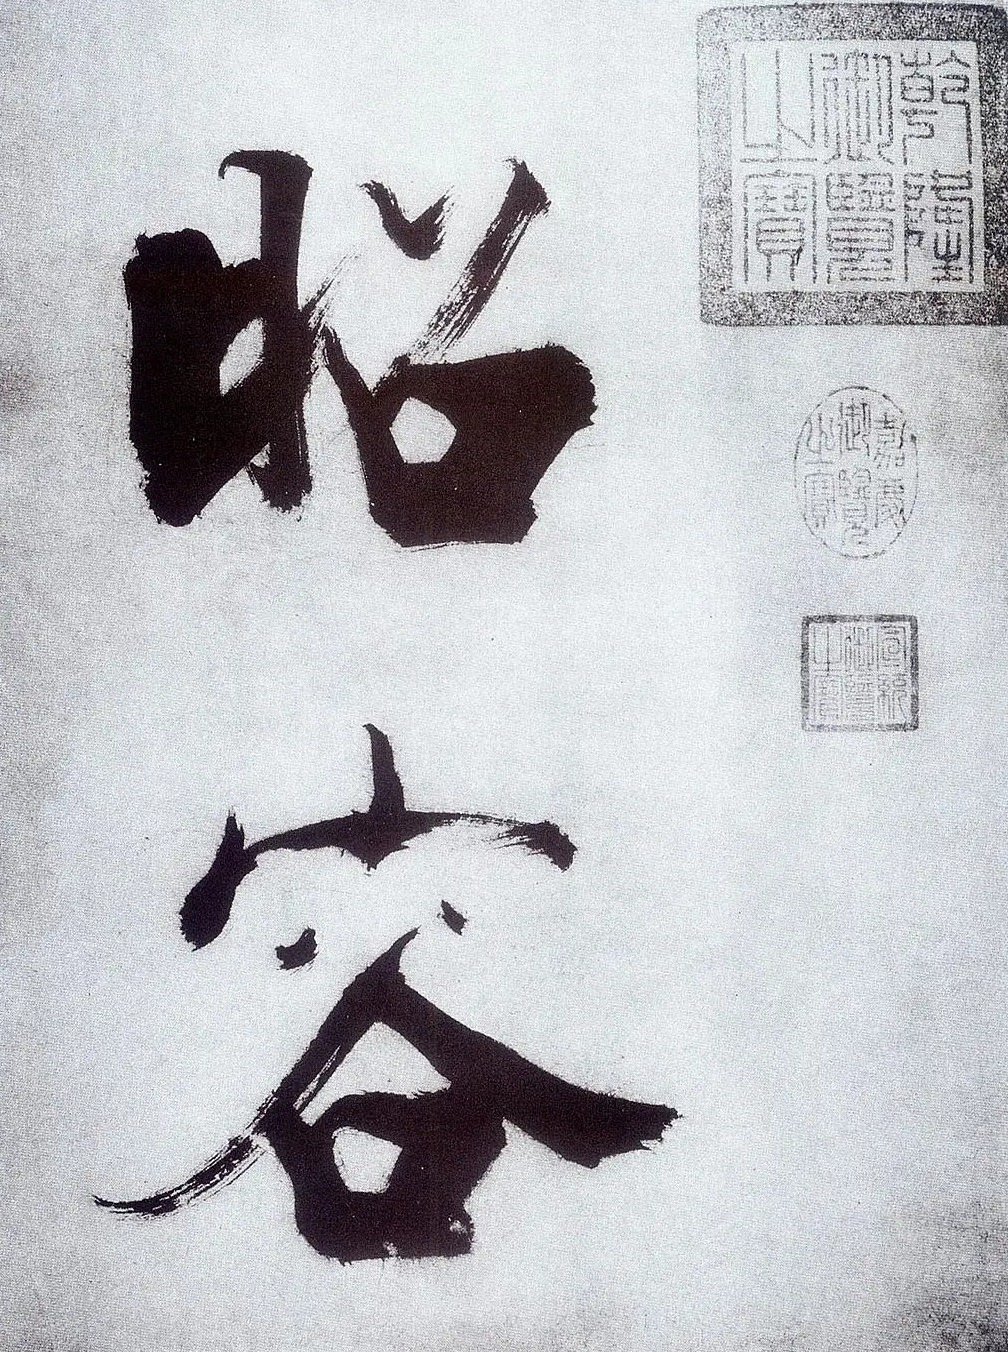 乾隆
御覽
之寶
嘉慶
御覽
之寶
宣統
御覽
之寶
昭容